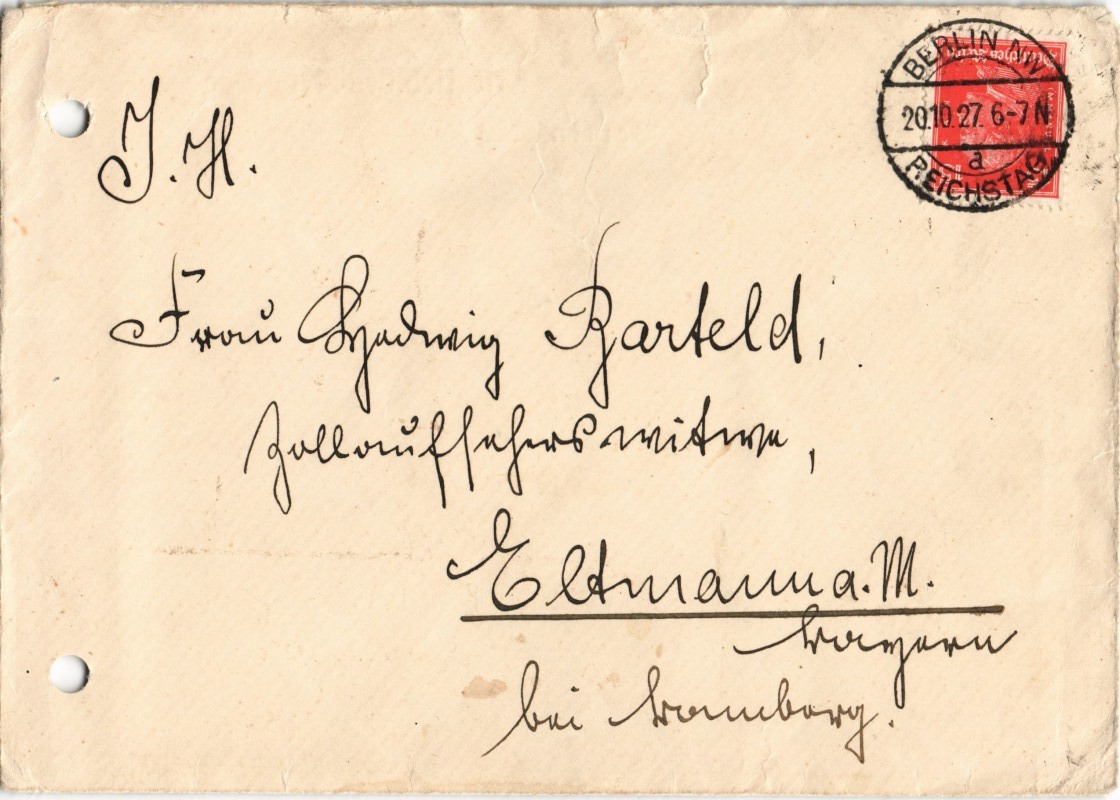 BERLIN NW
20.10.27. 6-7 N
a
REICHSTAG
Deutsches Reich
J. H.
Frau Hedwig Barteld,
Zollaufseherswitwe,
Eltmann a. M.
Bayern
bei Bamberg.